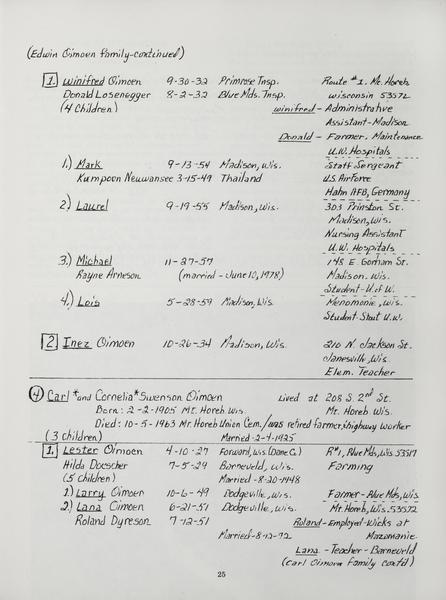 (Edwin Oimoen Family-continued)
1. Winifred Oimoen 9-30-32 Primrose Tnsp. Route #1, Mt. Horeb
Donald Losenegger 8-2-32 Blue Mds. Tnsp. Wisconsin 53572
(4 Children) Winifred - Administrative
Assistant-Madison
Donald - Farmer, Maintenance
U.W. Hospitals
1.) Mark 9-13-54 Madison, Wis. Staff Sergeant
Kumpoon Neuwansee 3-15-49 Thailand U.S. Airforce
Hahn AFB, Germany
2.) Laurel 9-19-55 Madison, Wis. 303 Prinston St.
Madison, Wis.
Nursing Assistant
U.W. Hospitals
3.) Michael 11-27-57 148 E. Gorham St.
Rayne Arneson (married - June 10, 1978) Madison, Wis.
Student - U. of W.
4.) Lois 5-28-59 Madison, Wis. Menomonie, Wis.
Student Stout U.W.
2. Inez Oimoen 10-26-34 Madison, Wis. 210 N. Jackson St.
Janesville, Wis.
Elem. Teacher
4 Carl * and Cornelia * Swenson Oimoen Lived at 208 S. 2nd St.
Born: 2-2-1905 Mt. Horeb Wis. Mt. Horeb Wis.
Died: 10-5-1963 Mt. Horeb Union Cem. / was retired farmer, highway worker
(3 Children) Married - 2-4-1925
1. Lester Oimoen 4-10-27 Forward, Wis. (Dane C.) R#1, Blue Mds, Wis. 53517
Hilda Doescher 7-5-29 Barneveld, Wis. Farming
(5 Children) Married - 8-20-1948
1.) Larry Oimoen 10-6-49 Dodgeville, Wis. Farmer - Blue Mds, Wis.
2.) Lana Oimoen 6-21-51 Dodgeville, Wis. Mt. Horeb, Wis. 53572
Roland Dyreson 7-12-51 Roland - Employed - Wicks at
Married - 8-12-72 Mazomanie.
Lana - Teacher - Barneveld
(Carl Oimoen Family cont'd)
25